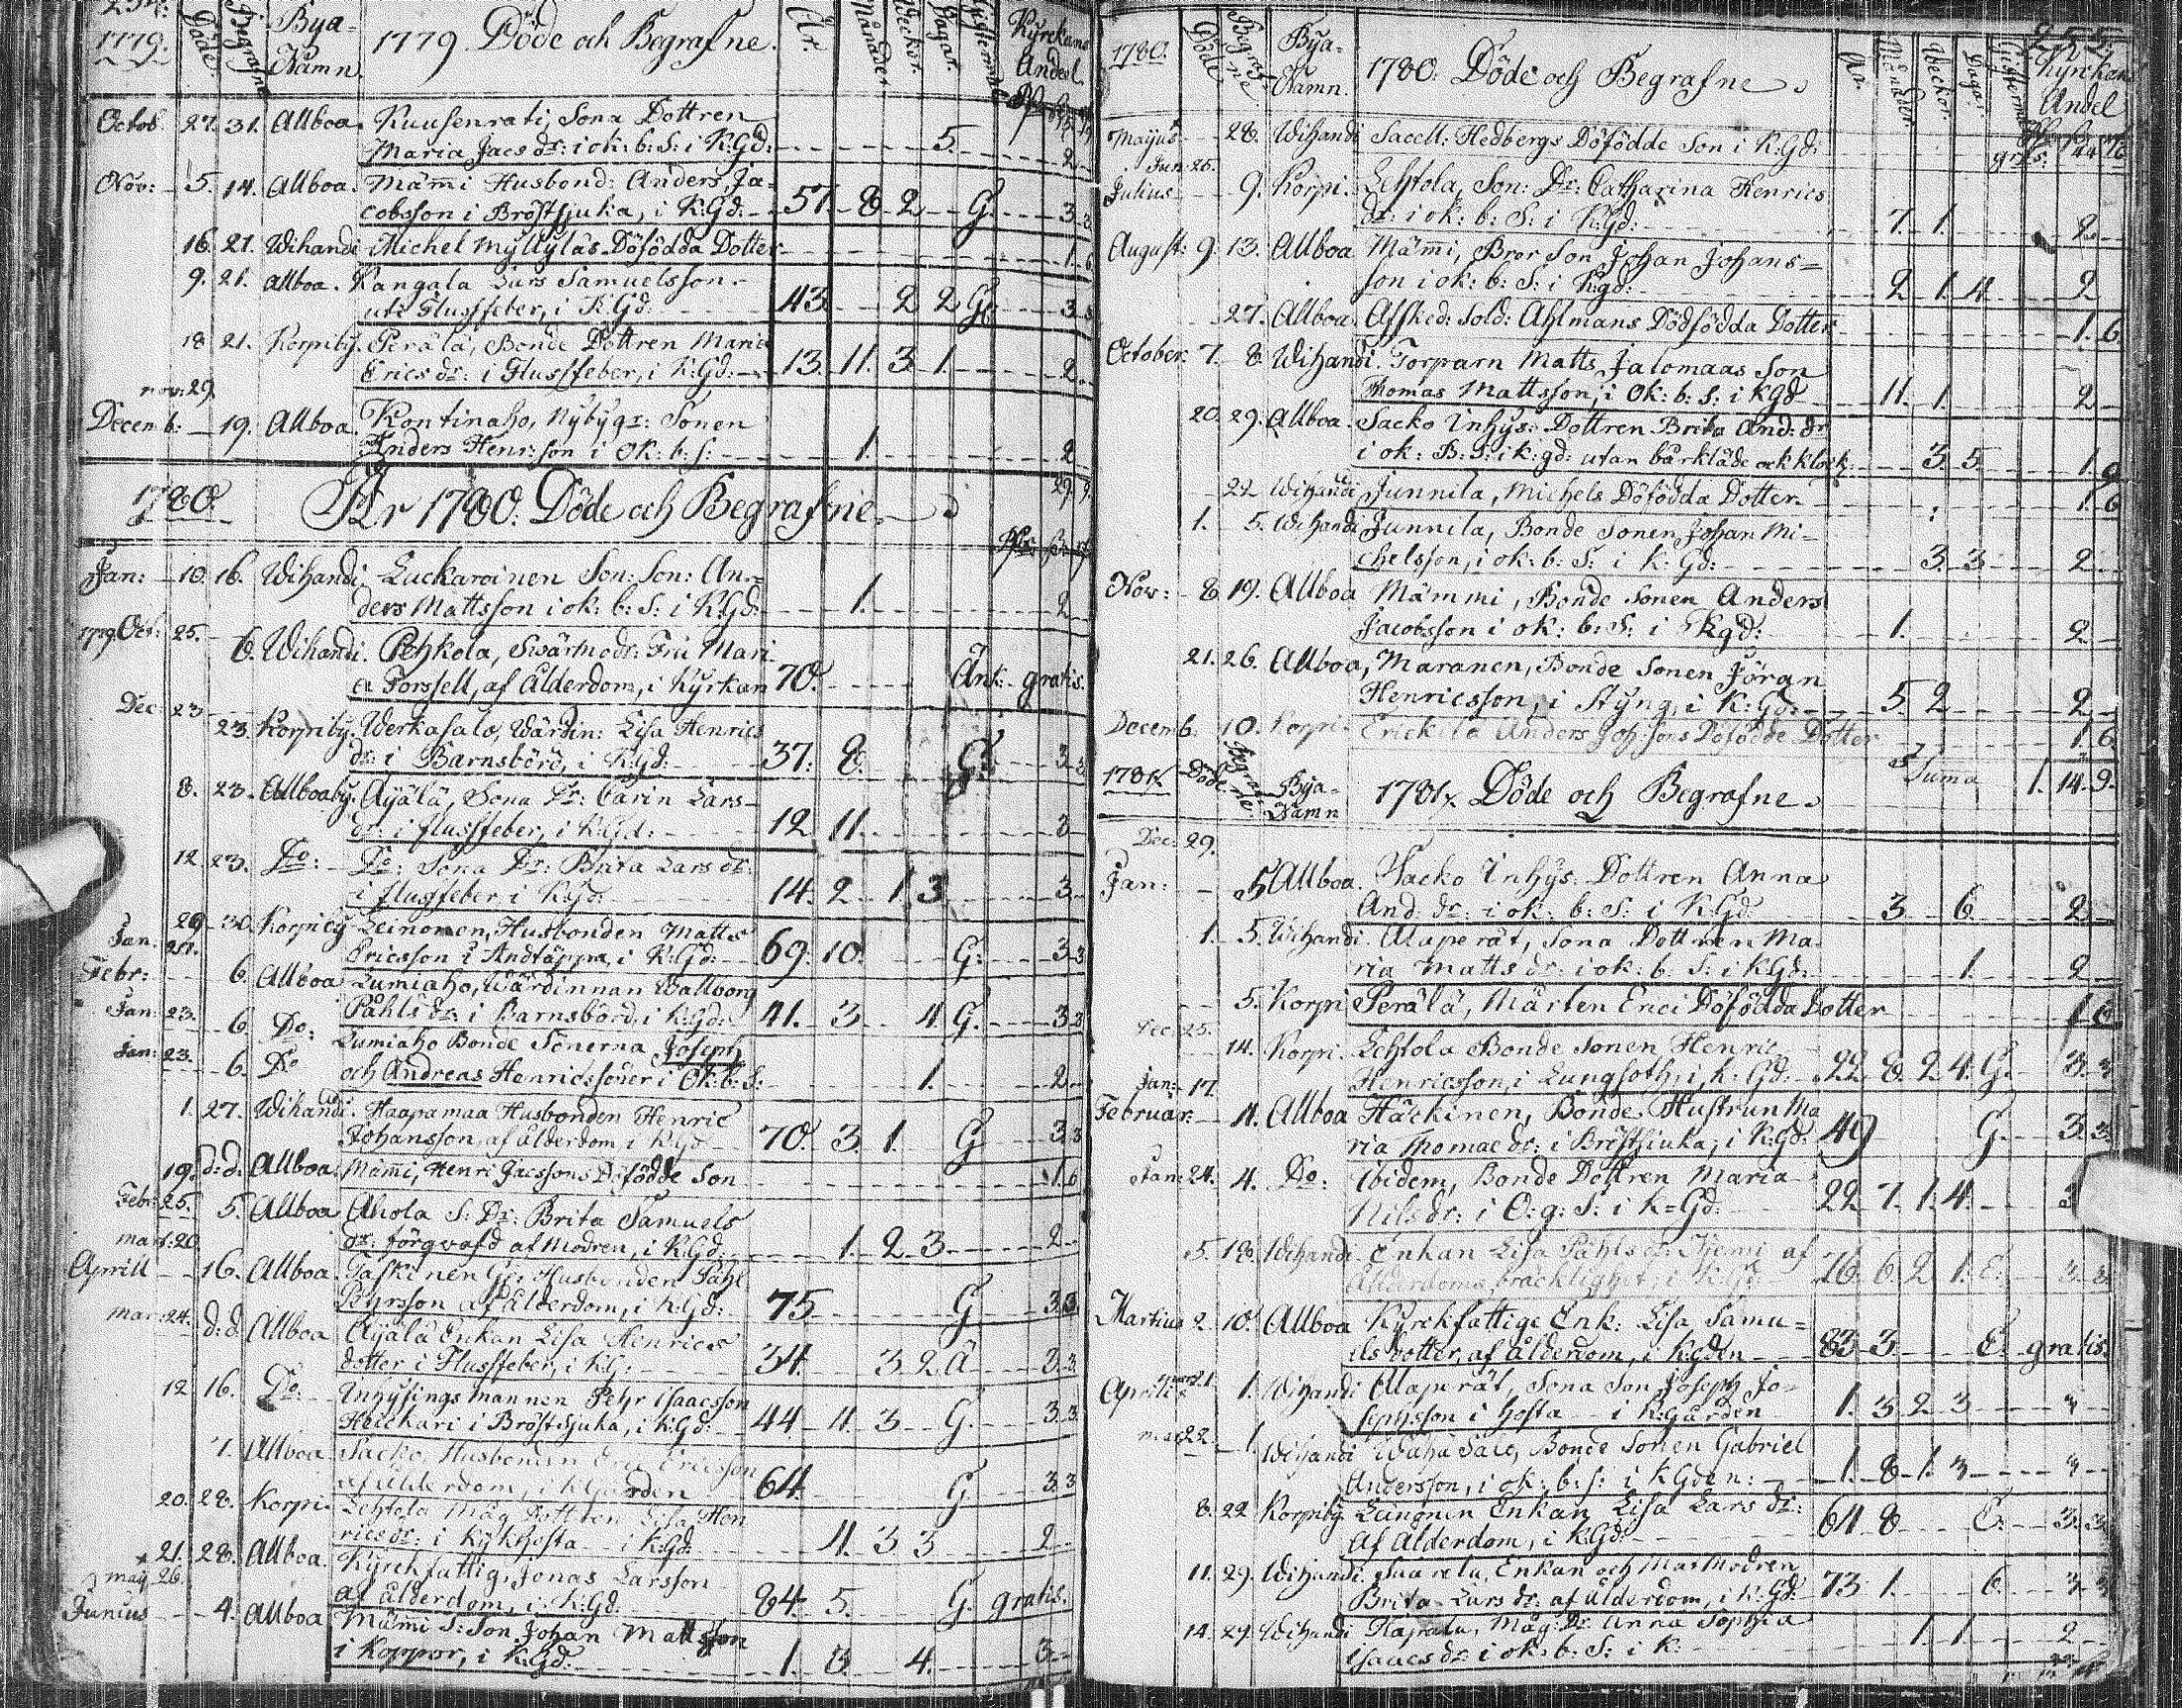 234.
1779. Döde. Begrafne Bya-Namn. 1779 Döde och Begrafne. År. Månader. Weckor. Dagar. Kyrckans Andel.
Octob. 27. 31. Allboa. Kuusenrati, Sona Dottren
Maria Jacs dr: i ok: b: S: i K:Gd: 5. 2
Nov: 5. 14. Allboa. Mämi Husbond: Anders Ja-
cobsson i Bröstsjuka, i K:Gd: 57. 8 2 G. 3 3
16. 21. Wihandi Michel Myllyläs Döfödda Dotter 1. 6
9. 21. Allboa. Kangala Lars Samuelsson
uti Flussfeber, i K:Gd: 43. 2 2 G. 3 3
18 21. Korpiby. Perälä, Bonde Dottren Maria
Erics dr: i Flussfeber, i K:Gd: 13. 11. 3. 1. 2
nov: 29.
Decemb: 19. Allboa. Kontinaho, Nybygr: Sonen
Anders Henr:son i Ok: b: s: 1. 2
29. 9.
1780. År 1780. Döde och Begrafne.
Jan: 10. 16. Wihandi. Luckaroinen Son: Son: An-
ders Mattsson i ok: b: S: i K:Gd: 1. 2
1779. Oct: 25. 6. Wihandi. Pehkola, Swärmodr: Fru Mari-
a Forssell, af Ålderdom, i Kyrkan 70. Änk: gratis.
Dec 23. 23. Korpiby. Werkasalo, Wärdin: Lisa Henrics
dr: i Barnsbörd, i K:Gd: 37. 8. G. 3 3
8. 23. Allboaby. Äyälä, Sona Dr: Carin Lars-
dr: i flussfeber, i K:Gd: 12 11. 3
12. 23. Do: Do: Sona Dr: Brita Lars dr:
i flussfeber i K:Gd: 14. 2 1. 3 3
29 30. Korpiby Leinonen, Husbonden Matts
Ericsson i Andtäppa, i K:Gd: 69. 10. G. 3 3
Jan: 21.
Febr: 6. Allboa Lumiaho, Wärdinnan Wallborg
Påhls dr: i Barnsbörd, i K:Gd: 41. 3 4 G. 3 3
Jan: 23. 6. Do: Lumiaho Bonde Sönerna Joseph
Jan: 23. 6. Do och Andreas Henricssöner i Ok: b: S: 1. 2
1. 27. Wihandi. Haapamaa Husbonden Henric
Johansson, af ålderdom i K:Gd 70. 3. 1. G 3 3
19. d: d: Allboa. Mämi, Henr: Jacssons Döfödde Son 1. 6
Febr: 25. 5. Allboa Ahola S: Dr: Brita Samuels
dr: förqvafd af Modren, i K:Gd: 1. 2 3 2
mar: 20.
Aprill 16. Allboa. Taskinen Husbonden Påhl
Pehrsson af ålderdom, i K:Gd: 75 G 3 3
mar: 24. d: d: Allboa Äyälä Enkan Lisa Henrics
dotter i Flussfeber, i K:G: 34. 3 2 Ä 3 3
12 16. Do. Inhysings mannen Pehr Isaacsson
i Bröstsjuka, i K:Gd: 44 11 3 G. 3 3
7. Allboa Sacko, Husbonden Eric Ericsson
af ålderdom, i K:Gården 64. G. 3 3
20. 28. Korpi. Lehtola Måg Dottren Lisa Hen
rics dr: i Kykhosta i K:Gd: 11. 3 3 2
21. 28. Allboa. Kyrckfattig, Jonas Larsson
af ålderdom, i K:Gd: 84. 5. G. gratis.
maij 26.
Junius 4. Allboa Mämi S: Son Johan Mattsson
i Koppor, i K:Gd: 1. 8. 4. 3
255.
1780. Döde. Begrafne. Bya-Namn. 1780. Döde och Begrafne. År. Månader. Weckor. Dagar. Kyrckans Andel
Maijus 28. Wihandi Sacell: Hedbergs Döfödde Son i K:Gd: gratis.
Jun: 25.
Julius 9. Korpi. Lehtola, Son: Dr: Catharina Henrics
dr: i ok: b: S: i K:Gd: 7. 1. 2
August: 9. 13. Allboa Mämi, Bror Son Johan Johans=
son i ok: b: S: i K:gd: 2. 1. 4. 2
27. Allboa. Afsked: Sold: Ahlmans Dödfödda Dotter 1. 6
October: 7. 8. Wihandi. Torparn Matts Jalomaas Son
Thomas Mattsson, i Ok: b: s: i K:gd 11. 1. 2
20. 29. Allboa. Sacko Inhys: Dottren Brita And: dr
i ok: B: S: i k: gd: utan bårkläde ock klock: 3. 5. 1.
22 Wihandi Junnila, Michels Döfödda Dotter 1. 6
1. 5. Wihandi Junnila, Bonde Sonen Johan Mi-
chelsson, i ok: b: S: i K: Gd: 3. 3 2
Nov: 8 19. Allboa Mämmi, Bonde Sonen Anders
Jacobsson i ok: b: S: i K:gd: 1. 2
21. 26. Allboa, Maranen, Bonde Sonen Jöran
Henricsson, i Styng, i K:Gd: 5. 2 2
Decemb: 10. Korpi. Erickilä Anders Joh:sons Döfödde Dotter 1. 6.
Suma 1. 14. 9.
1781. Döde. Begrafne. Bya-Namn 1781. Döde och Begrafne.
Dec: 29.
Jan: 5 Allboa. Sacko Inhys: Dottren Anna
And: dr: i ok: b: S: i K:Gd: 3 6 2
1. 5. Wihandi. Alaperät, Sona Dottren Ma-
ria Matts dr: i ok: b: S: i K:Gd: 1. 2
5. Korpi Perälä, Mårten Erici Döfödda Dotter 1 6
Dec: 25. 14. Korpi. Lehtola Bonde Sonen Henric
Henricsson, i Lungsoth, i K: Gd: 22 8. 2 4. G. 3. 3
Jan: 17.
Februar: 4. Allboa Häckinen, Bonde Hustrun Ma
ria Thomae dr: i Bröstsiuka, i K:Gd: 49 G. 3. 3
Jan: 24. 4. Do: Ibidem, Bonde Dottren Maria
Nils dr: i O: g: S: i K=Gd: 22 7. 1. 4.
5. 18. Wihandi. Enkan Lisa Påhls dr: af
Ålderdoms bräcklighet, i K:Gd: 76. 6. 2 1. E. 3. 3
Martius 2. 10. Allboa Kyrckfattige Enk: Lisa Samu=
els dotter, af ålderdom, i K:Gden 83 3. E. gratis.
Aprill 1. Wihandi Alaperät, Sona Son Joseph Jo-
sephsson i hosta i K:Gården 1. 3 2 3 3
mar 22. 1. Wihandi Wähä Salo, Bonde Sonen Gabriel
Andersson, i ok: b: s: i K:Gden: 1. 8. 1. 3 3
8. 22 Korpiby Leinonen Enkan Lisa Lars dr:
Af Ålderdom, i K:Gd: 61 8 E. 3. 3
11. 29. Wihandi. Enkan och Mormodren
Brita Lars dr: af ålderdom, i K: Gd: 73. 1. 6. 3 3
14. 29. Wihandi Måg: Dr: Anna Sophia
Isaacs dr: i ok: b: S: i K: 1. 1 2